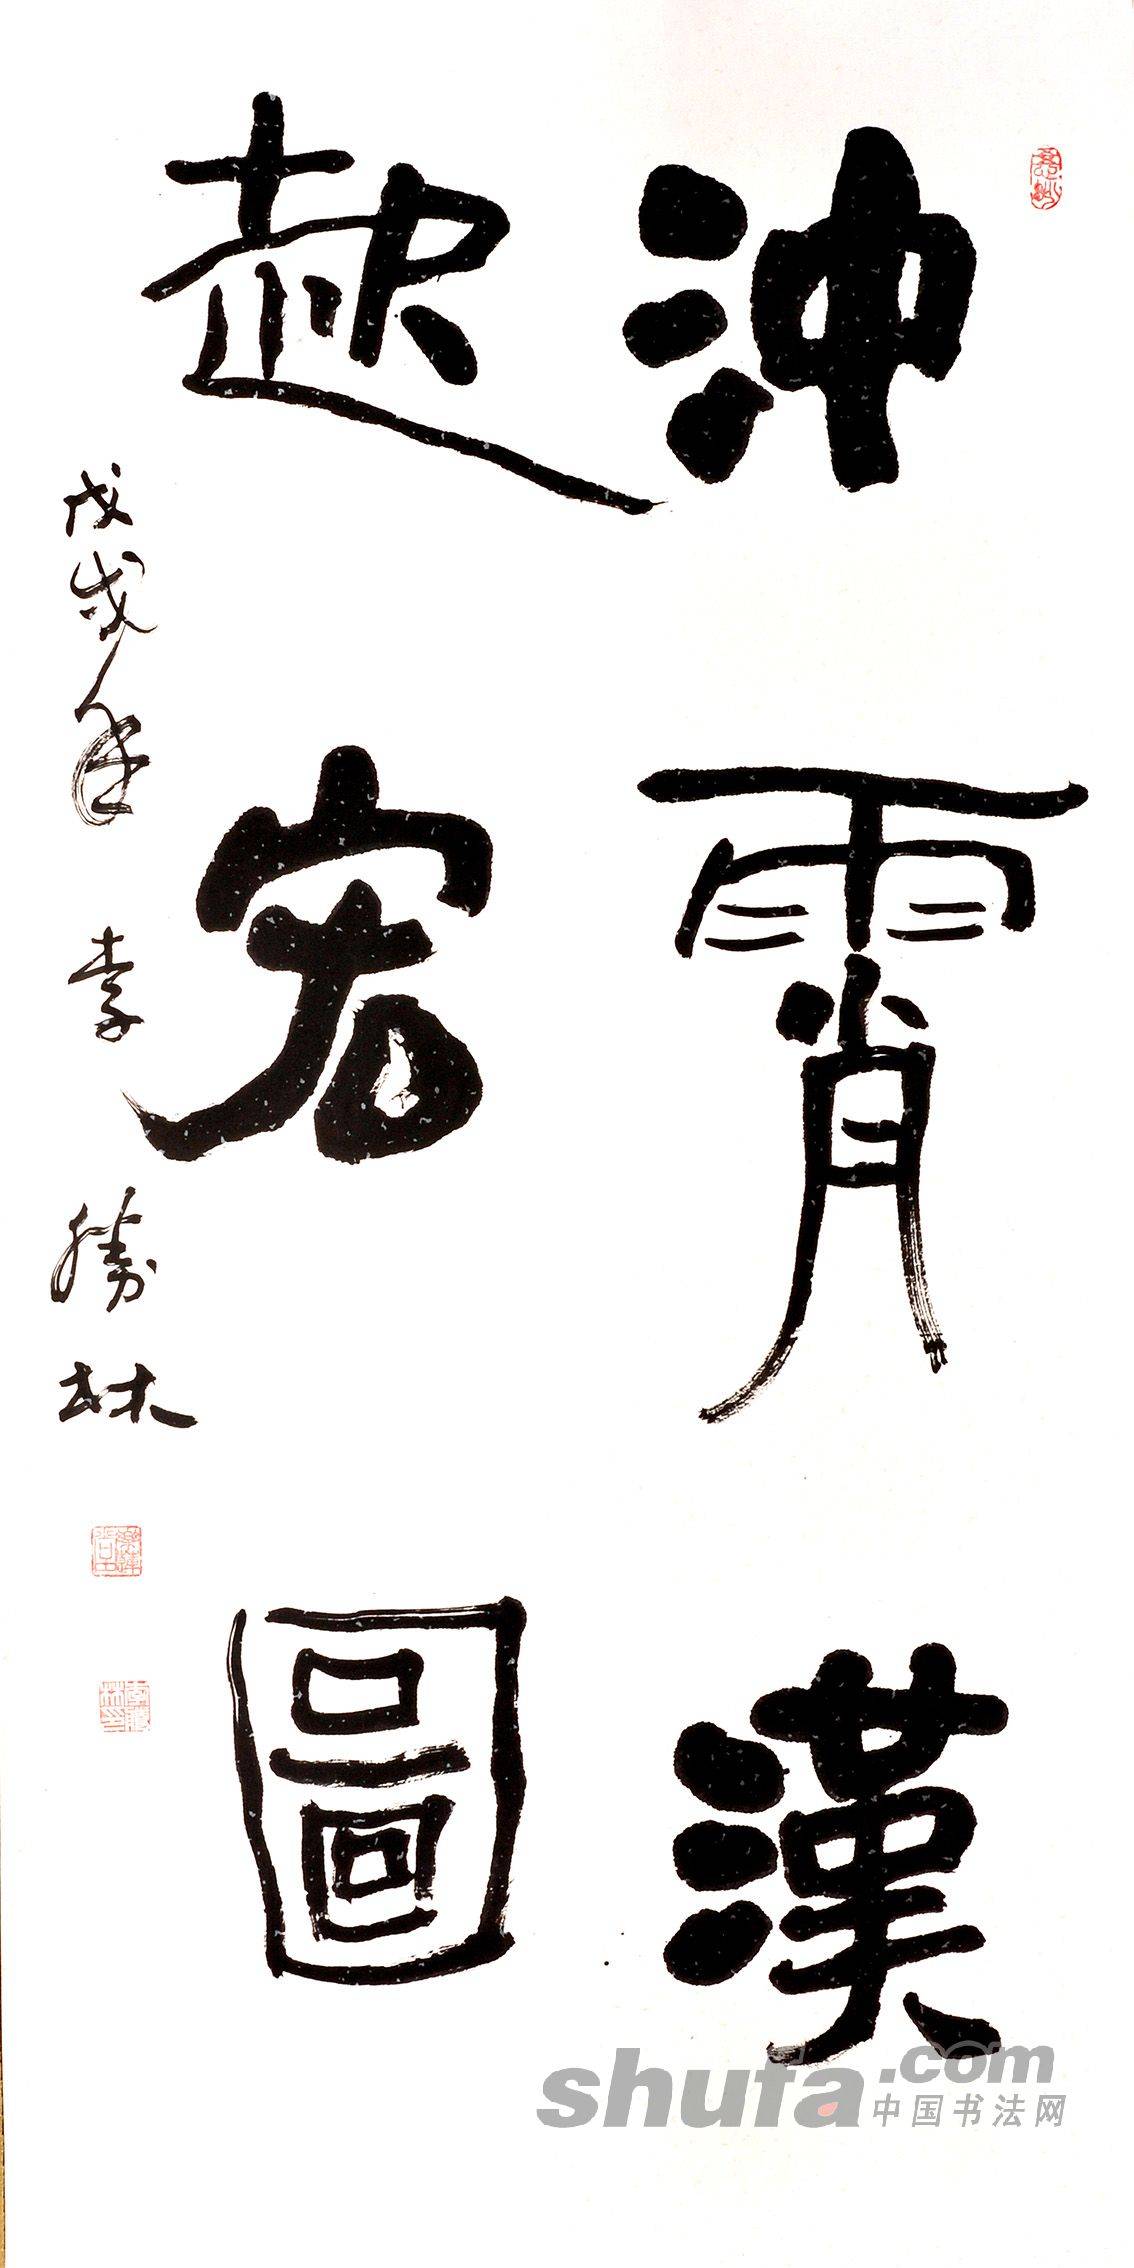 沖霄漢
起宏圖
戊戌年 李勝林
shufa.com
中国书法网